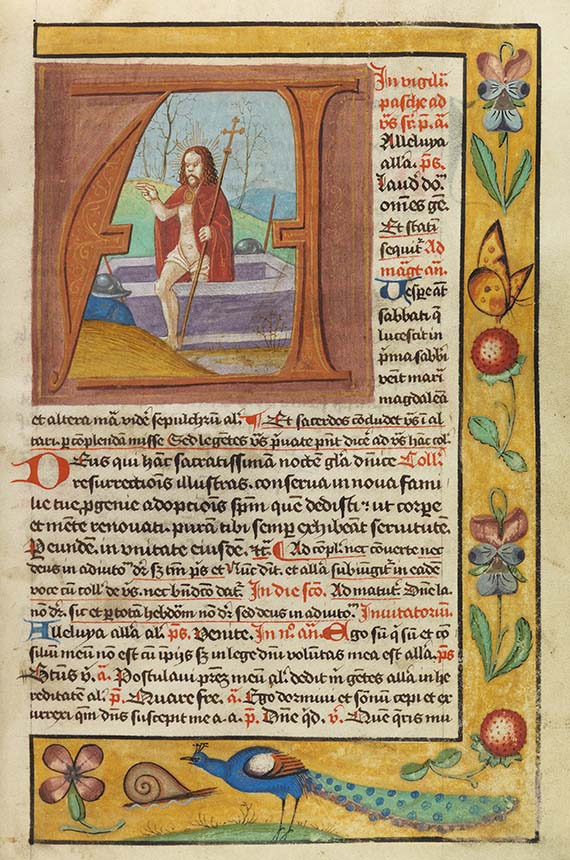 A
In vigilia
pasche ad
vs̃ sr̃. p̃. a̅.
Alleluya
alla. ps̃.
Laud̾ do̅.
om̃es ge̅.
Et stati̅
sequit̾ Ad
mag̃t an̅.
Vesp̃e aũt
sabbati q̃
lucescit in
p̃ma sabbi̅
venit mari̅
magdalena̅
et altera ma̅. vide̅ sepulchru̅ al̾. ¶ Et sacerdos co̅cludet vs̃ i̅ al
tari p̱ co̅plenda̅ misse Sed lege̅tes vs̃ p̃uate p̃nt dice̅ ad vs̃ ha̅c col̾.
Deus qui ha̅c sacratissima̅ nocte̅ gl̃a dn̅ice Coll̾.
resurrectionis illustras. conserua in noua fami
lie tue p̱genie adoptionis sp̅m que̅ dedisti ⁊ ut corpe
et me̅te renouati. pura̅ tibi semp̱ exhibea̅t seruitute̅.
P eunde̅. in unitate eiusde̅. ⁊c̅ ¶ Ad co̅pl̾. nec co̅uerte nec
deus in adiuto̅ dr̃. sz̾ tm̅ ps̃ et Nu̅c dit̾. et alla subiu̅git̾ in eade̅
voce cu̅ coll̾ de vs̃. nec bn̅dc̅o dat̾. In die sc̃o. Ad matut̾. Dn̅e la.
no̅ dr̃. sic et p̱ tota̅ hebdom̅ no̅ dr̃. sed deus in adiuto̅. Inuitatoriu̅.
Alleluya alla al̾. ps̃. Venite. In n̊. an̅. Ego su̅ q̃ su̅ et co̅
siliu̅ meu̅ no̅ est cu̅ ip̃ijs sz̾ in lege dn̅i volu̅tas mea est alla. ps̃
Bt̃us v̾. a̅. Postulaui pr̅ez meu̅ al̾. dedit m̃ ge̅tes alla in he
reditate̅ al̾. p̃. Quare fre̅. a̅. Ego dormiui et so̅nu̅ cepi et ex
urrexi qm̅ dn̅s suscepit me a. a. p̃. Dn̅e q̾d. v̾. Que q̃ris mu